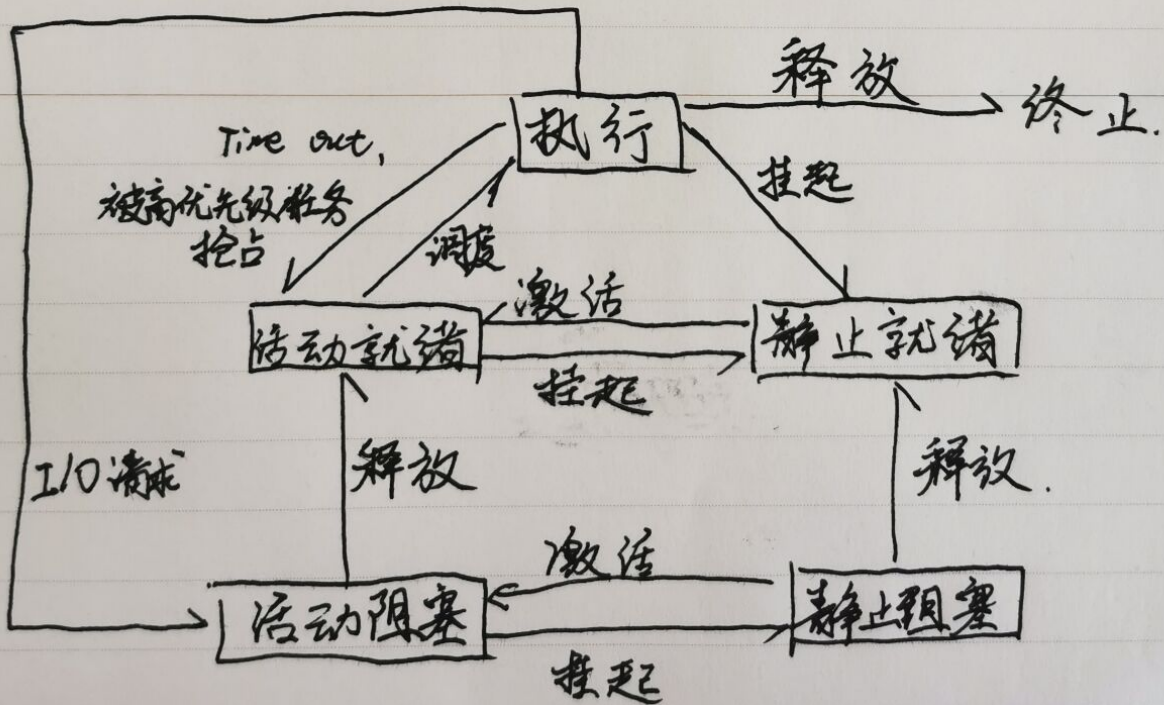 释放
执行
终止.
Time out,
挂起
被高优先级任务
抢占
调度
激活
活动就绪
静止就绪
挂起
I/O请求
释放
释放.
激活
活动阻塞
静止阻塞
挂起